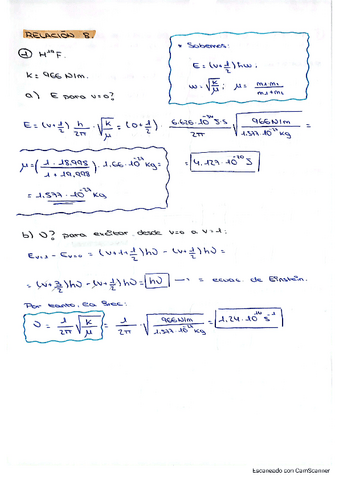 RELACIÓN 8.
① H¹⁹F.
K = 966 N/m.
a) E para v=0?
* Sabemos:
E = (v+1/2) hω;
ω = √(k/μ); μ = m₁·m₂/(m₁+m₂)
E = (v+1/2) h/2π · √(k/μ) = (0+1/2) · 6.626·10⁻³⁴ J·s/2π √(966 N/m / 1.577·10⁻²⁷ kg) =
μ = (1 · 18,998 / 1 + 18,998) · 1.66·10⁻²⁷ =
= 4,127·10⁻²⁰ J
= 1.577·10⁻²⁷ kg
b) ν? para excitar desde v=0 a v=1:
E_{v+1} - E_{v=0} = (v+1+1/2) hν - (v+1/2) hν =
= (v+3/2) hν - (v+1/2) hν = hν → = ecuac. de Einstein.
Por tanto, será:
ν = 1/2π √(k/μ) = 1/2π · √(966 N/m / 1.577·10⁻²⁷ kg) = 1.24·10¹⁴ s⁻¹
Escaneado con CamScanner